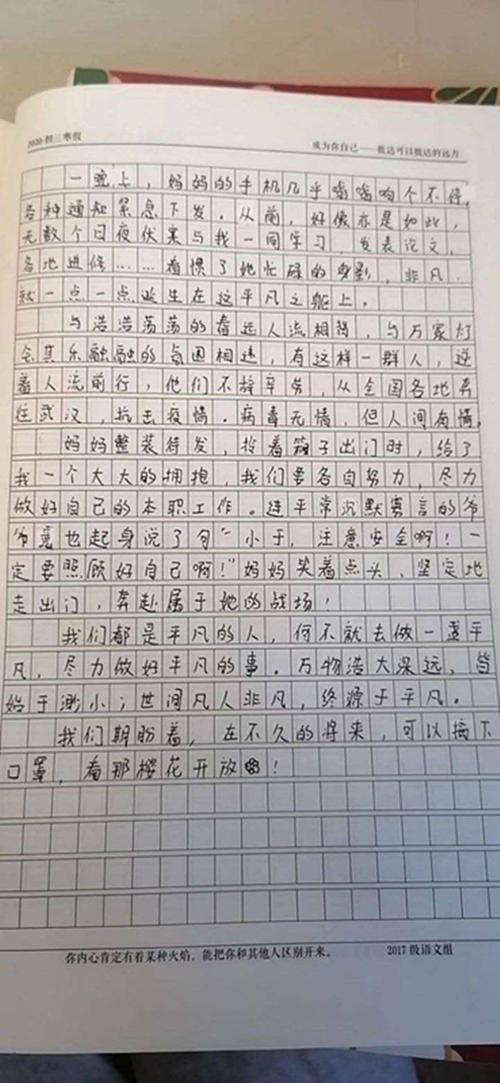 2020·初三寒假
成为你自己——抵达可以抵达的远方
一晚上，妈妈的手机几乎嗡嗡响个不停，
各种通知紧急下发。从前，好像亦是如此，
无数个日夜伏案与我一同学习 发表论文，
各地进修……看惯了她忙碌的身影，非凡
就一点一点诞生在这平凡之躯上。
与浩浩荡荡的春运人流相背，与万家灯
会其乐融融的氛围相违，有这样一群人，逆
着人流前行，他们不辞辛劳，从全国各地奔
往武汉，抗击疫情。病毒无情，但人间有情，
妈妈整装待发，拎着箱子出门时，给了
我一个大大的拥抱，我们要各自努力，尽力
做好自己的本职工作。连平常沉默寡言的爷
爷竟也起身说了句“小于，注意安全啊！一
定要照顾好自己啊！”妈妈笑着点头，坚定地
走出门，奔赴属于她的战场！
我们都是平凡的人，何不就去做一盏平
凡，尽力做好平凡的事。万物浩大深远，皆
始于渺小；世间凡人非凡，终源于平凡。
我们期盼着，在不久的将来，可以摘下
口罩，看那樱花开放！
你内心肯定有着某种火焰，能把你和其他人区别开来。
2017级语文组